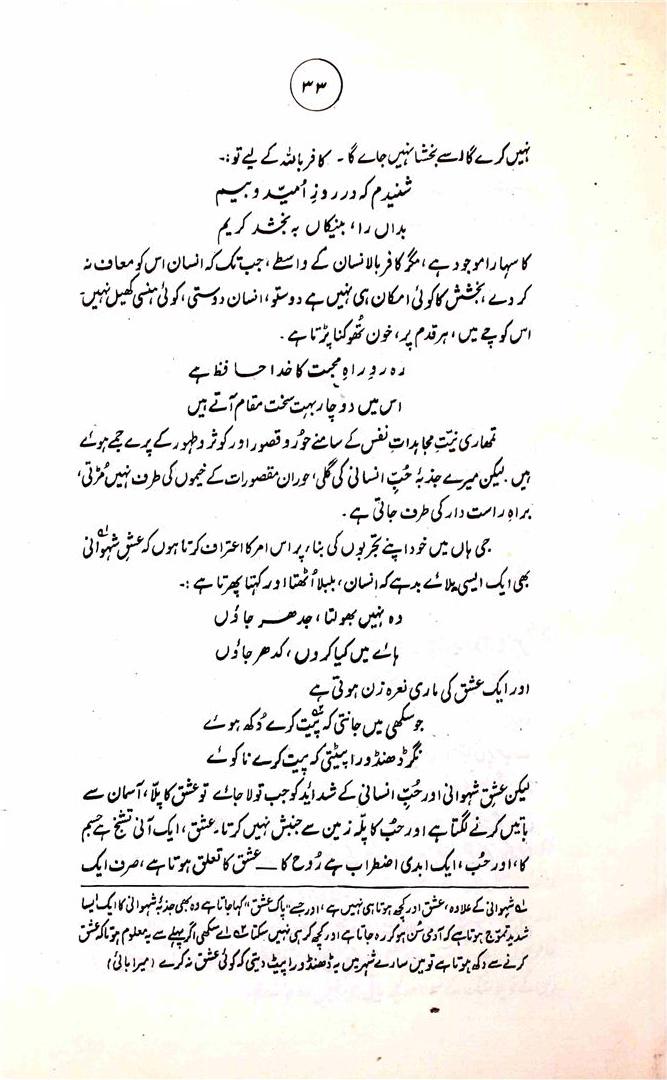 ۳۳
نہیں کرے گا اسے بخشا نہیں جاے گا۔ کافر باللہ کے لیے تو:۔
شنیدم کہ در روزِ اُمید و بیم
بداں را، بہ نیکاں بہ بخشد کریم
کا سہارا موجود ہے، مگر کافر بالانسان کے واسطے، جب تک کہ انسان اس کو معاف نہ
کر دے، بخشش کا کوئی امکان ہی نہیں ہے دوستو، انسان دوستی، کوئی ہنسی کھیل نہیں۔
اس کوچے میں، ہر قدم پر، خون تھوکنا پڑتا ہے۔
رہ روِ راہِ محبت کا خدا حافظ ہے
اس میں دو چار بہت سخت مقام آتے ہیں
تمھاری نیّتِ مجاہداتِ نفس کے سامنے حُور و قصور اور کوثر و طہور کے پرے جمے ہوے
ہیں۔ لیکن میرے جذبۂ حُبِّ انسانی کی گلی، حورانِ مقصورات کے خیموں کی طرف نہیں مُڑتی،
براہِ راست دار کی طرف جاتی ہے۔
جی ہاں میں خود اپنے تجربوں کی بنا، پر اس امر کا اعتراف کرتا ہوں کہ عشقِ شہوانی؂۱
بھی ایک ایسی بلاے بد ہے کہ انسان، بلبلا اُٹھتا اور کہتا پھرتا ہے:۔
وہ نہیں بھولتا، جدھر جاؤں
ہاے میں کیا کروں، کدھر جاؤں
اور ایک عشق کی ماری نعرہ زن ہوتی ہے
جو سکھی میں جانتی کہ پیت؂۲ کرے دُکھ ہوے
نگر ڈھنڈورا پیٹتی کہ پیت کرے نا کوے
لیکن عشقِ شہوانی اور حُبِّ انسانی کے شداید کو جب تولا جاے تو عشق کا پلّا، آسمان سے
باتیں کرنے لگتا ہے اور حُب کا پلہ زمین سے جنبش نہیں کرتا۔ عشق، ایک آنی تشنج ہے جسم
کا، اور حُب، ایک ابدی اضطراب ہے رُوح کا ـــ عشق کا تعلق ہوتا ہے، صرف ایک
؂۱ شہوانی کے علاوہ، عشق اور کچھ ہوتا ہی نہیں ہے، اور جسے "پاک عشق" کہا جاتا ہے وہ بھی جذبۂ شہوانی کا ایک ایسا
شدید تموّج ہوتا ہے کہ آدمی سُن ہو کر رہ جاتا ہے اور کچھ کر ہی نہیں سکتا ؂۲ اے سکھی اگر پہلے سے یہ معلوم ہوتا کہ عشق
کرنے سے دکھ ہوتا ہے تو میں سارے شہر میں یہ ڈھنڈورا پیٹ دیتی کہ کوئی عشق نہ کرے (میرا بائی)